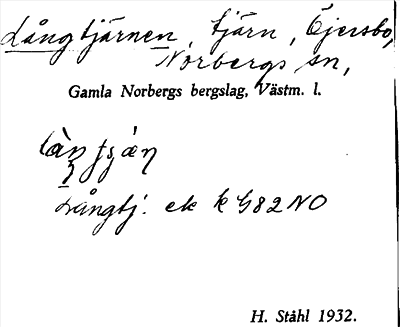 Långtjärnen, tjärn, Ejersbo,
Norbergs sn,
Gamla Norbergs bergslag, Västm. l.
Långtj. ek k G82NO
H. Ståhl 1932.